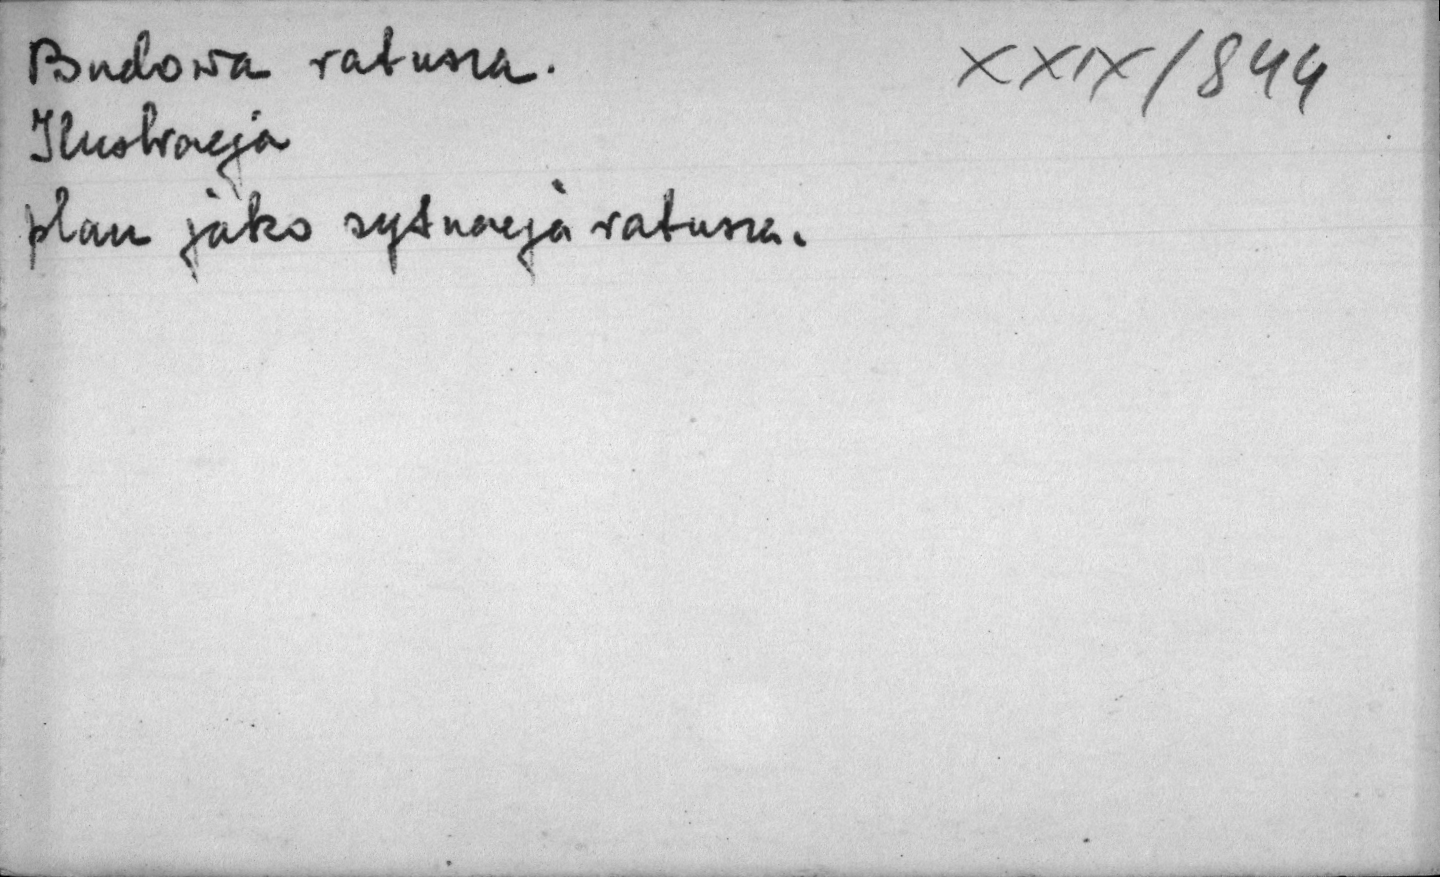 Budowa ratusza.
XXIX/844
Ilustracja
plan jako sytuacja ratusza.